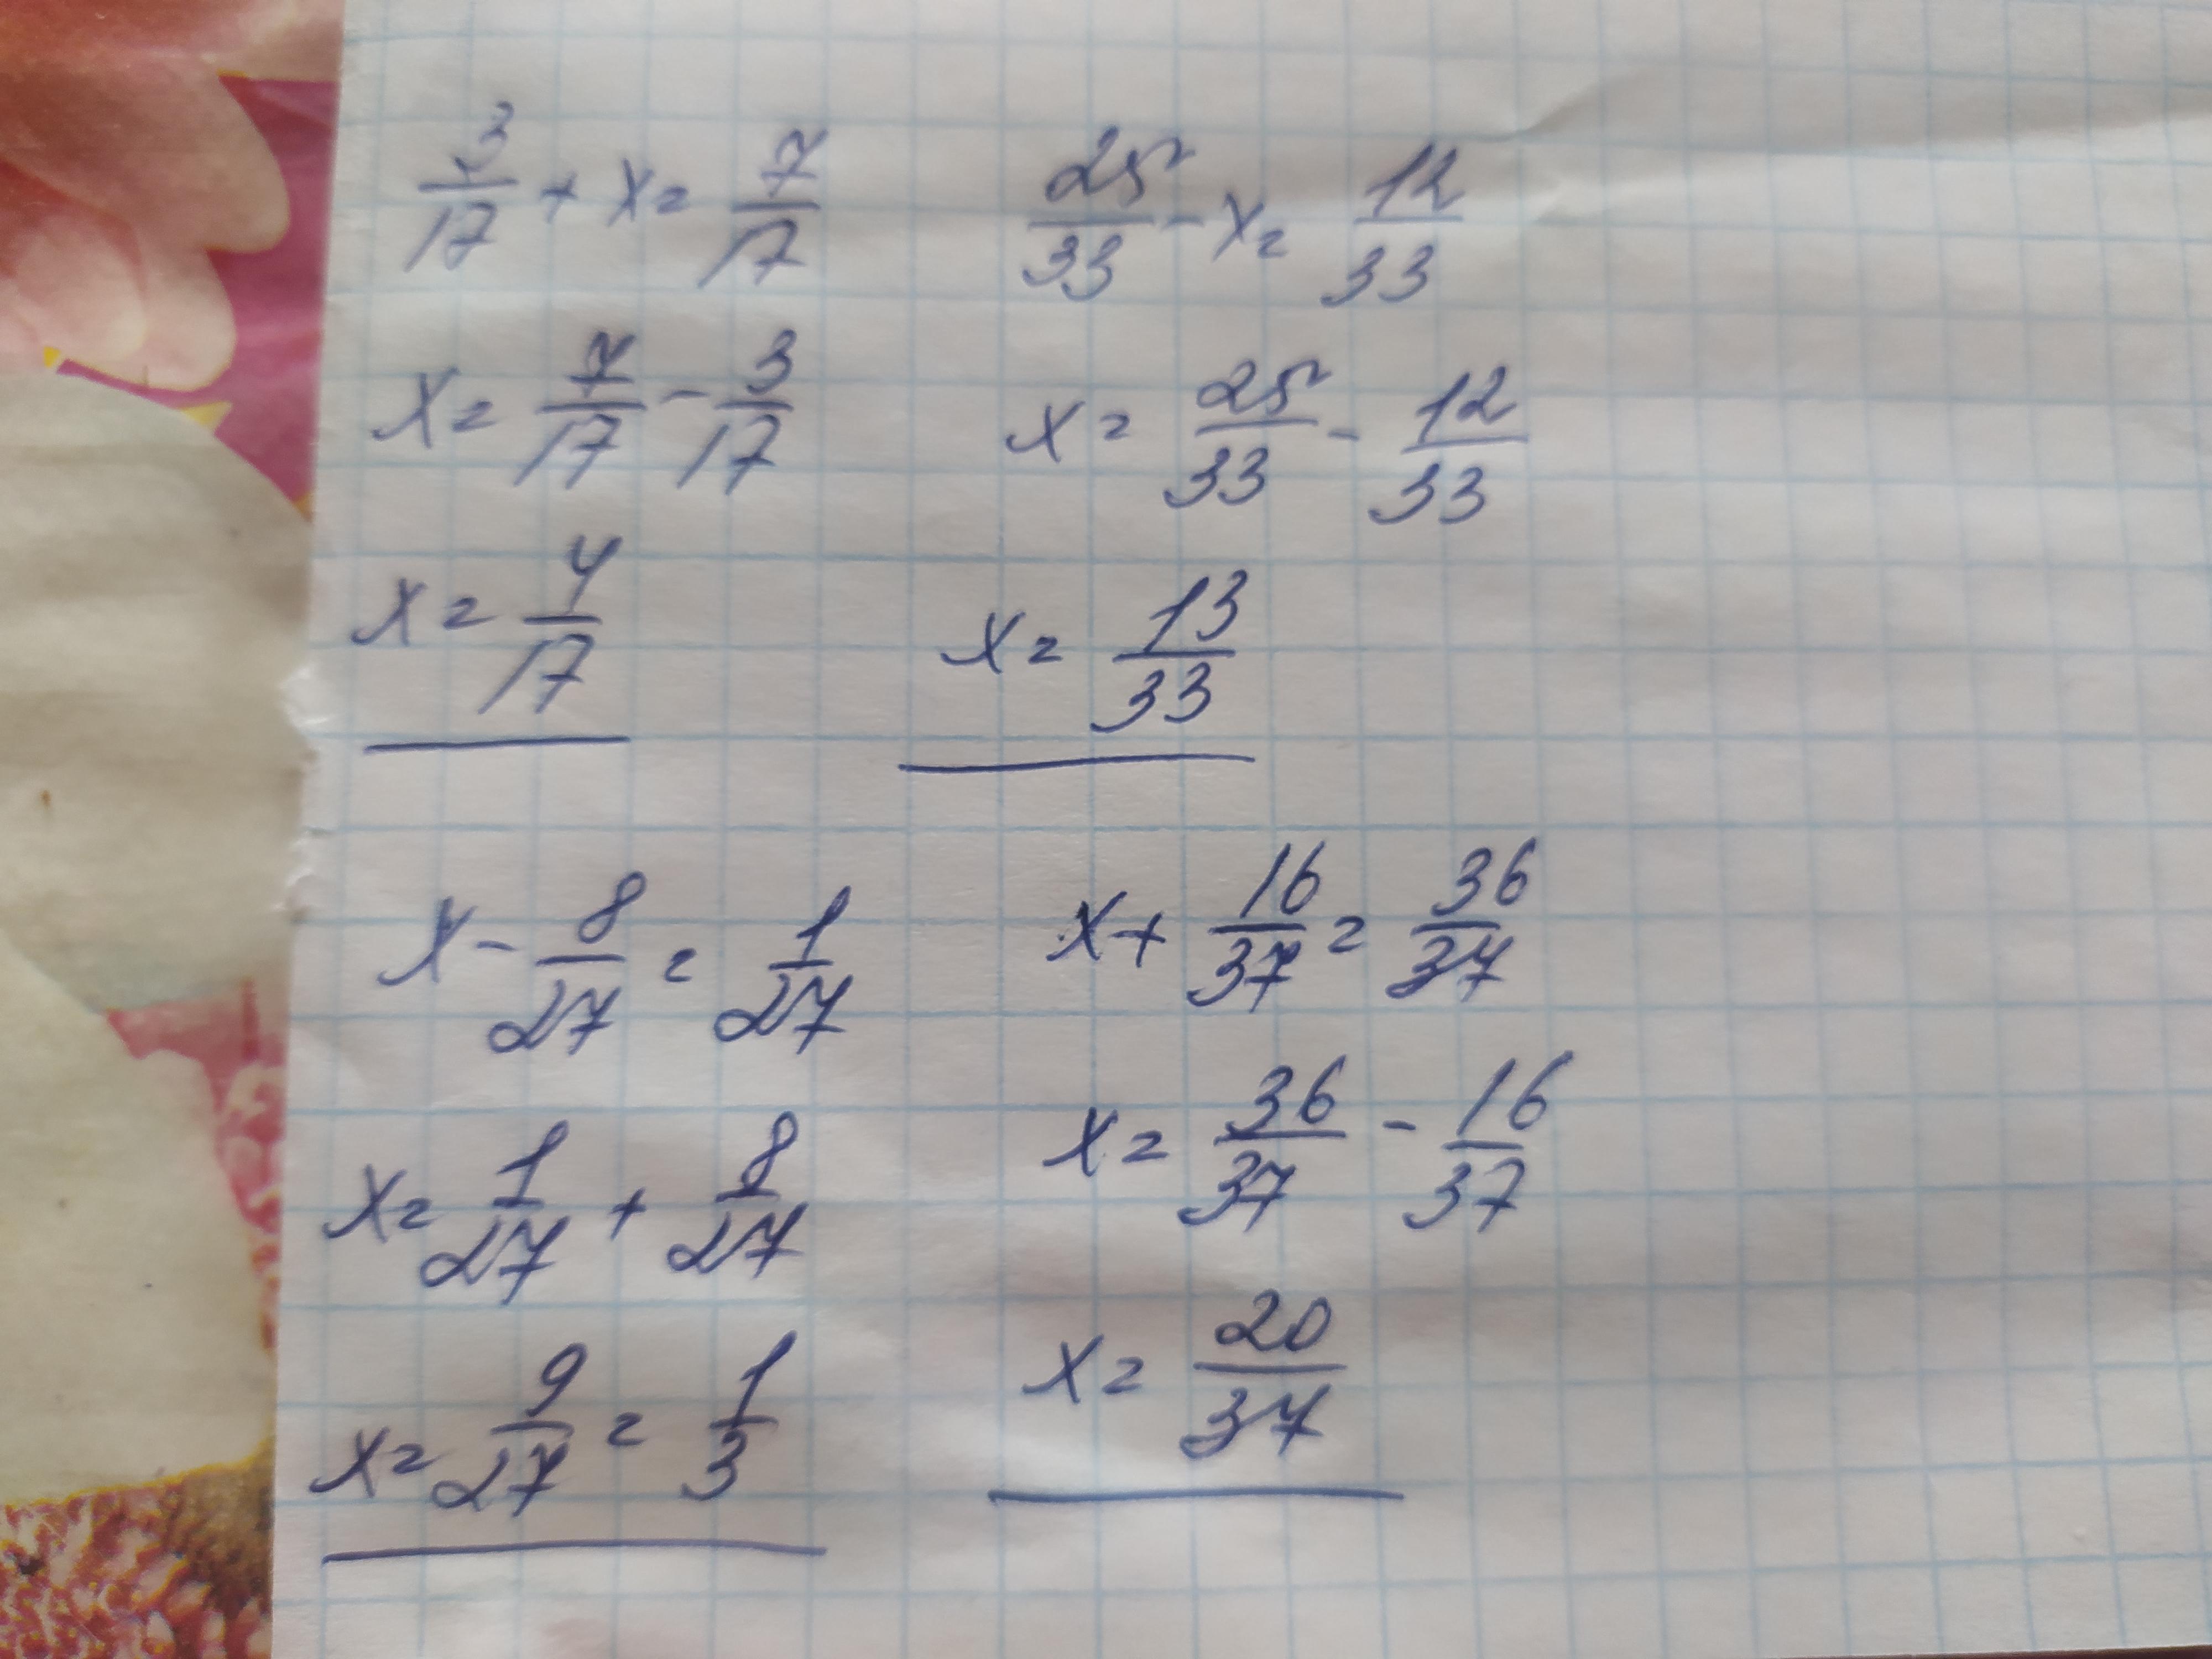 3/17 + x = 7/17
x = 7/17 - 3/17
x = 4/17
25/33 - x = 12/33
x = 25/33 - 12/33
x = 13/33
x - 8/27 = 1/27
x = 1/27 + 8/27
x = 9/27 = 1/3
x + 16/37 = 36/37
x = 36/37 - 16/37
x = 20/37